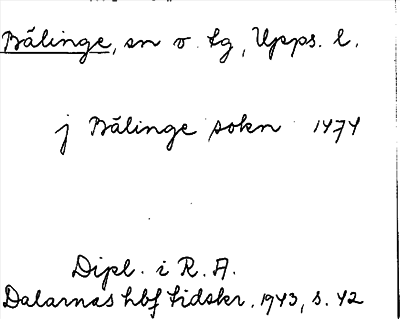 Bälinge, sn o. tg, Upps. l.
j Bälinge sokn 1474
Dipl. i R. A.
Dalarnas hbf tidskr. 1943, s. 42